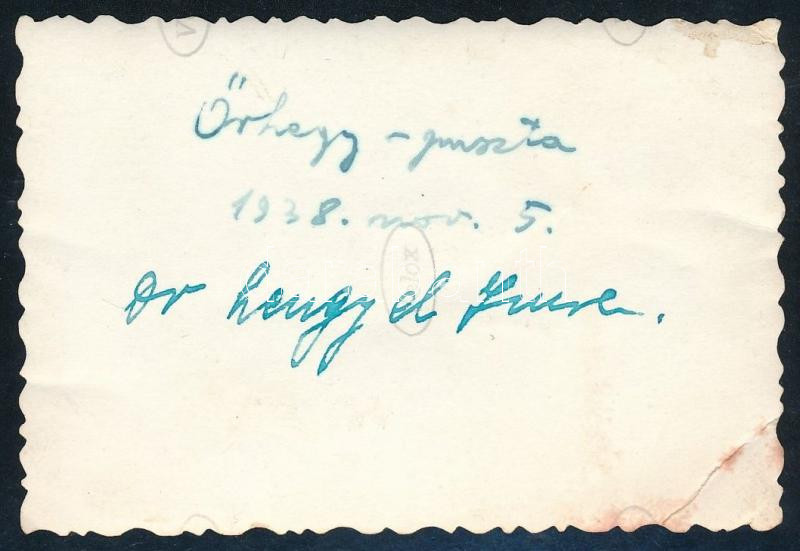 Őrhegy - puszta
1938. nov. 5.
Velox
Dr Lengyel Imre.